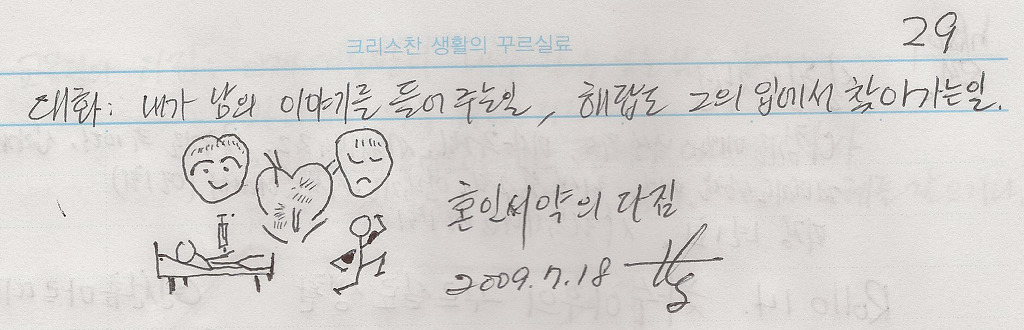 29
크리스찬 생활의 꾸르실료
대화: 내가 남의 이야기를 들어 주는일, 해답도 그의 입에서 찾아가는일.
혼인서약의 다짐
2009.7.18